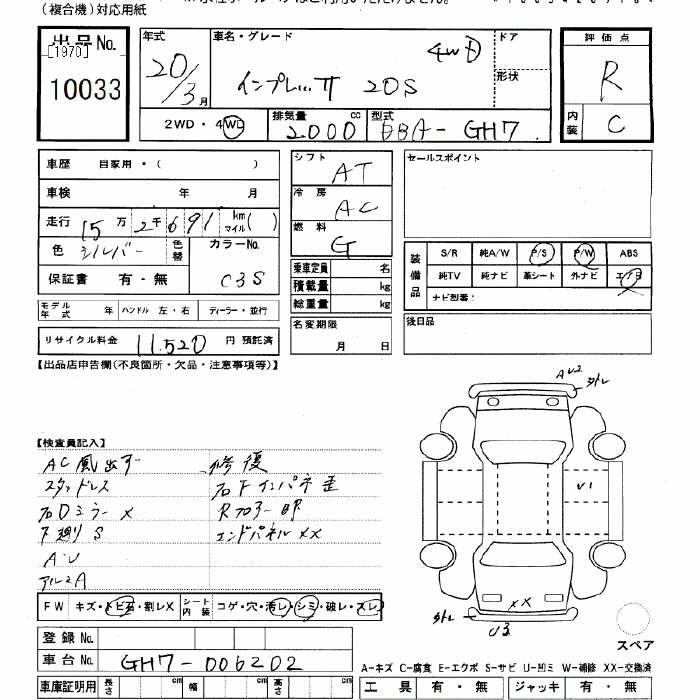 (複合機)対応用紙
出品No.
[1970]
10033
年式
20/3月
車名・グレード
4WD
インプレッサ 20S
ドア
形状
2WD・4WD
排気量 2000 cc
型式 DBA-GH7
評価点
R
内装 C
車歴 自家用・( )
車検 年 月
走行 15万2千691 km マイル( )
色 シルバー 色替
カラーNo. C3S
保証書 有・無
モデル年式 年 ハンドル 左・右 ディーラー・並行
リサイクル料金 11,520 円 預託済
シフト AT
冷房 AC
燃料 G
乗車定員 名
積載量 kg
総重量 kg
名変期限
月 日
セールスポイント
装備品
S/R 純A/W P/S P/W ABS
純TV 純ナビ 革シート 外ナビ エアB
ナビ型番:
後日品
【出品店申告欄(不良箇所・欠品・注意事項等)】
【検査員記入】
AC風出ず
スタッドレス
右Dミラー X
下廻り S
A・U
アルミA
修復
右Fインパネ歪
Rフロアー凹
エンドパネルXX
AU2
外レ
U1
XX
外レ
U3
スペア
FW キズ・トビ石・割レX
シート内装 コゲ・穴・汚レ・シミ・破レ・スレ
登録No.
車台No. GH7-006202
車庫証明用 長さ cm 幅 cm 高さ cm
A-キズ C-腐食 E-エクボ S-サビ U-凹ミ W-補修 XX-交換済
工具 有・無 ジャッキ 有・無